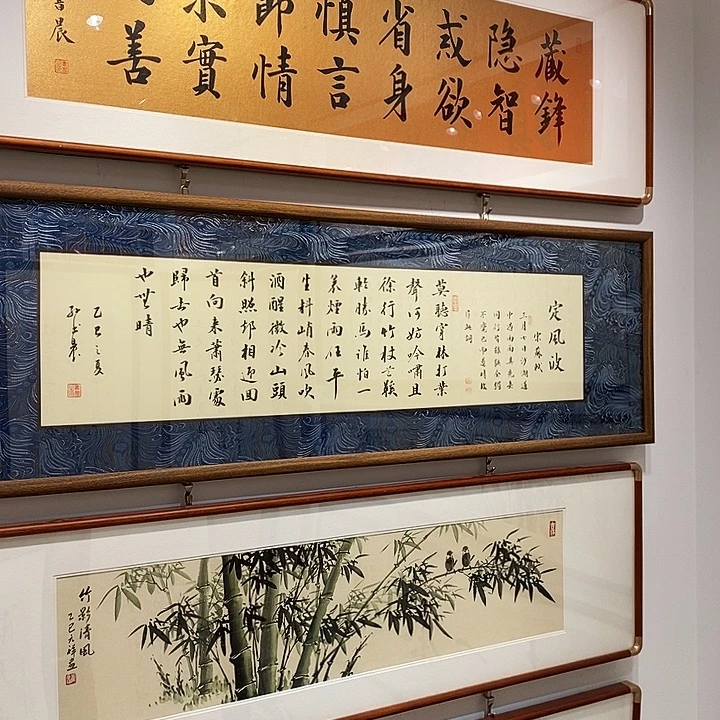 藏鋒
隐智
戒欲
省身
慎言
情
實
善
晨
定風波
宋蘇軾
三月七日沙湖道
中遇雨雨具先去
同行皆狼狽余獨
不覺已而遂晴故
作此詞
莫聽穿林打葉
聲何妨吟嘯且
徐行竹杖芒鞋
輕勝馬誰怕一
蓑煙雨任平
生料峭春風吹
酒醒微冷山頭
斜照却相迎回
首向来蕭瑟處
歸去也無風雨
也無晴
乙巳之夏
竹影清風
乙巳大祥畫